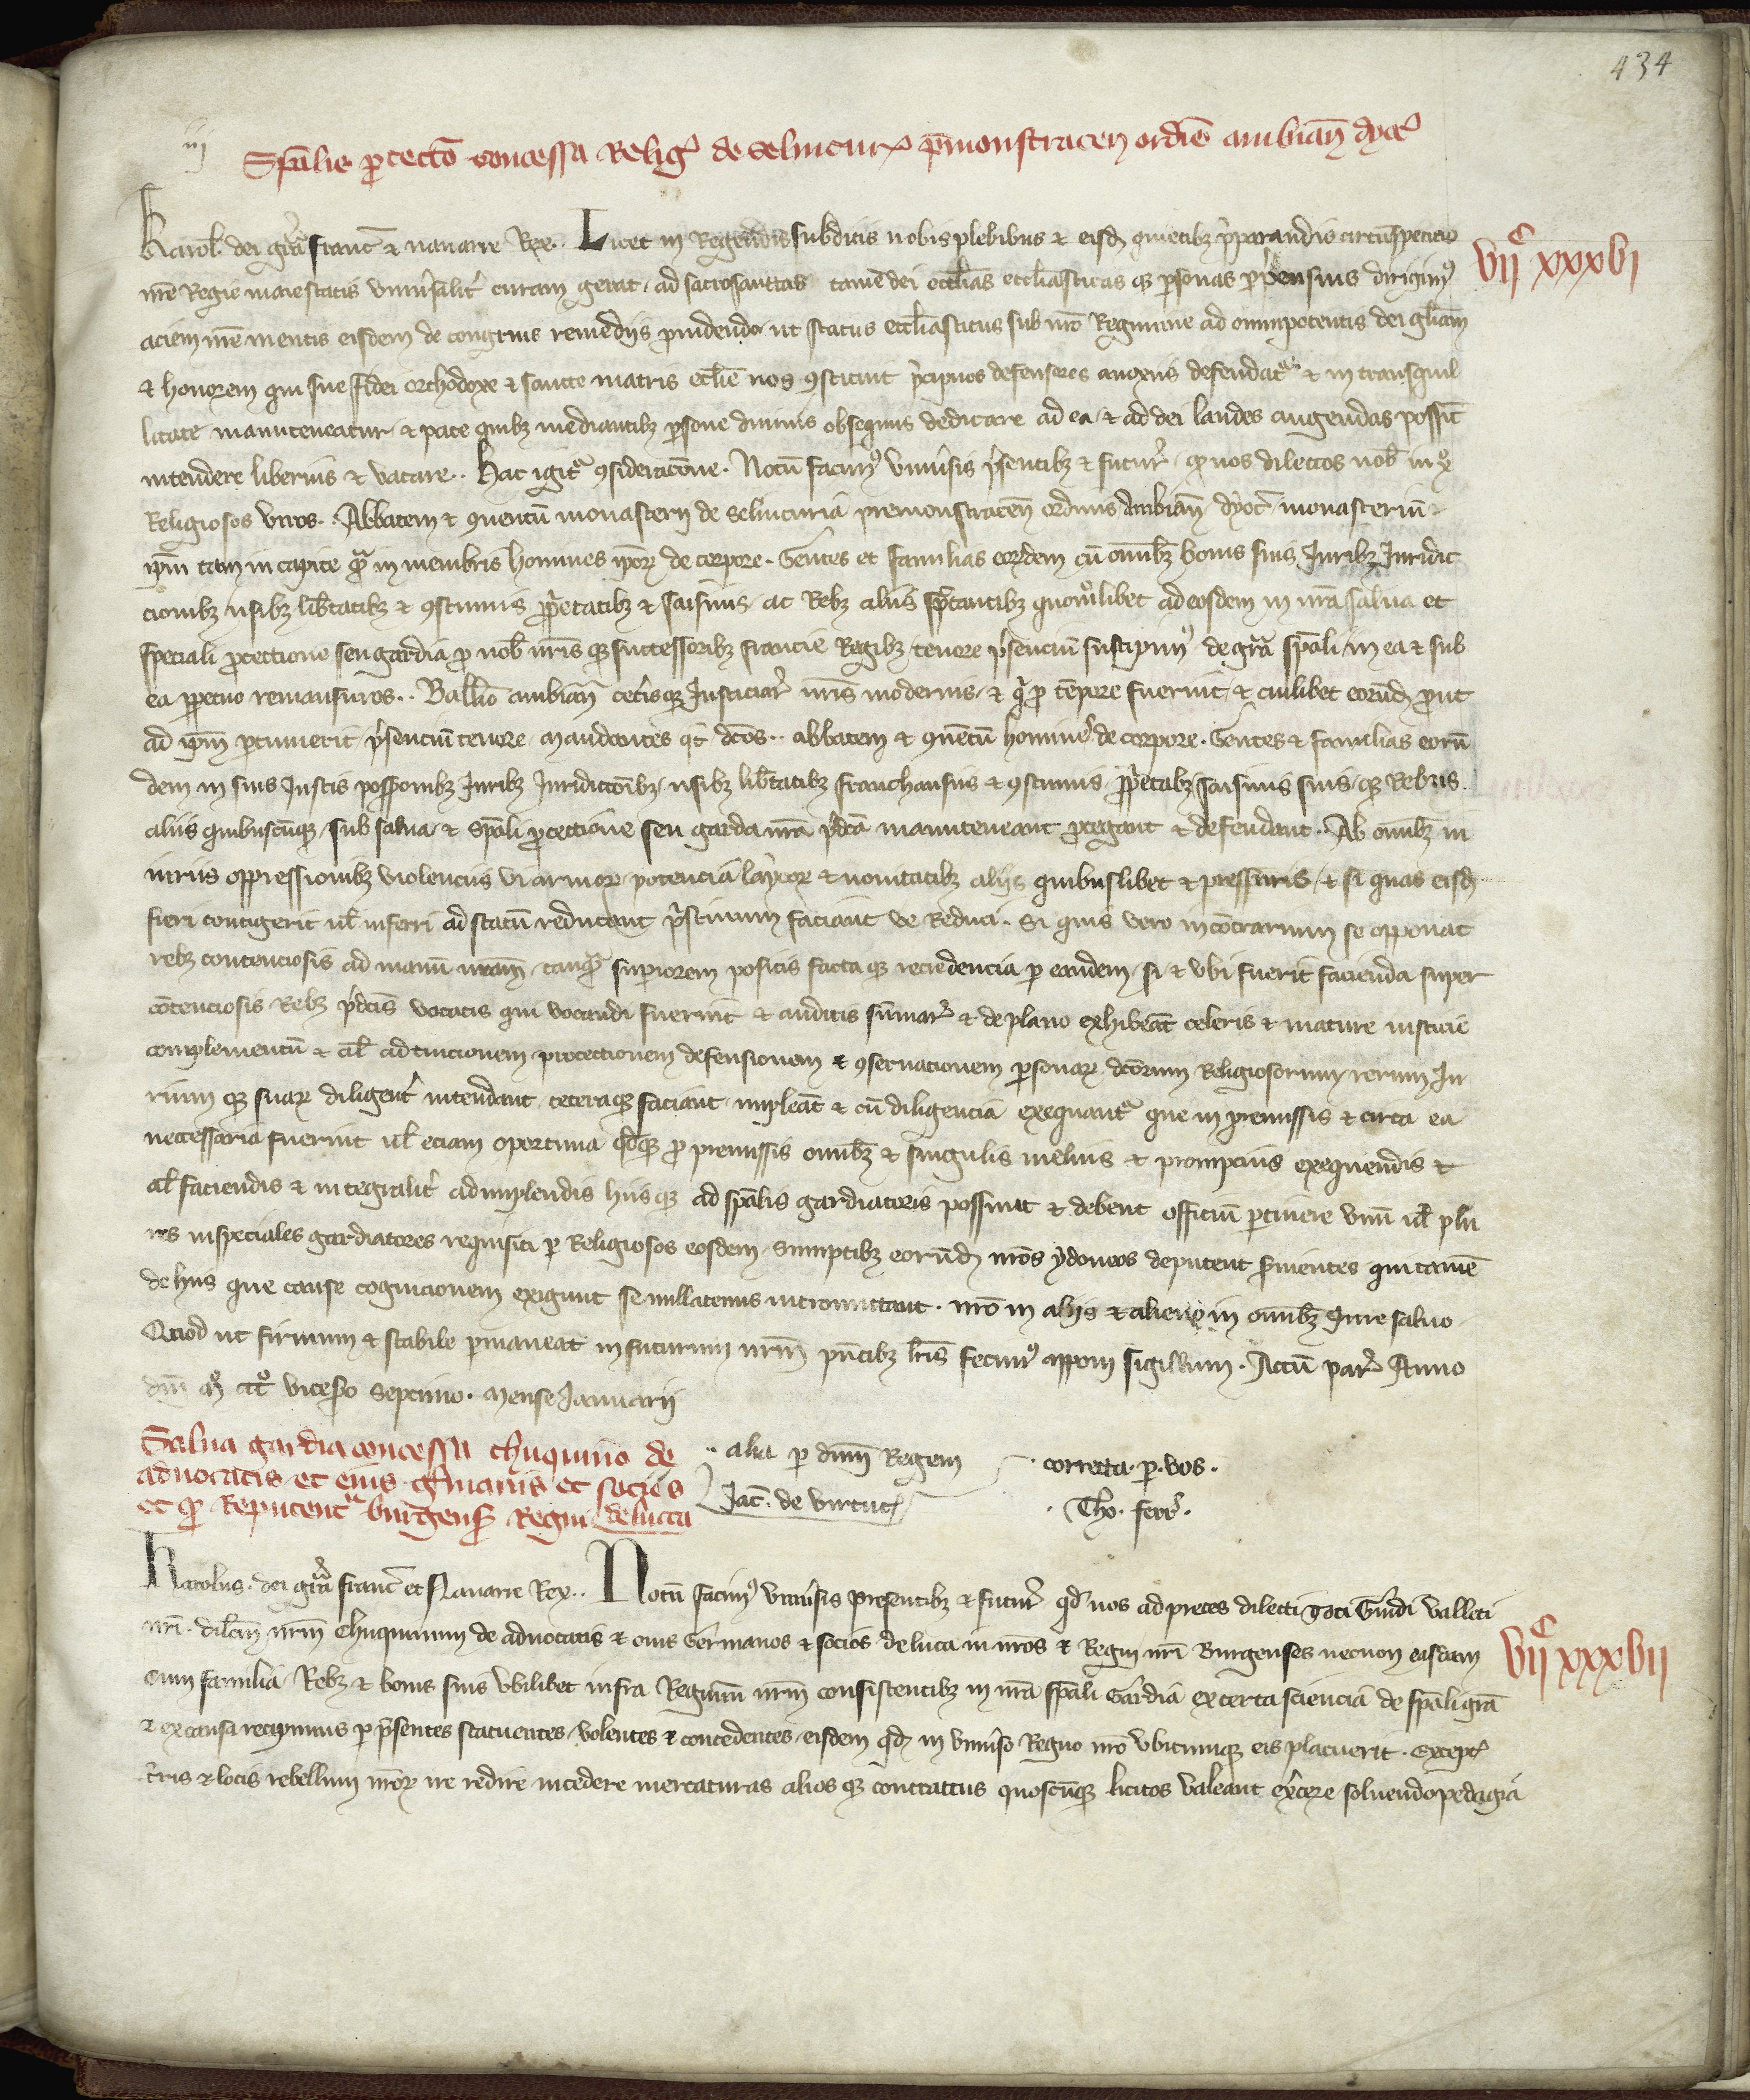 434
iij
Sp̄alis protectō concessa Relig̛ de Selincur̛ p̄monstraceñ ordīs ambiañ dyoc̛
Karol̛ dei gr̄a franc̛ & nauarre Rex. Licet in Regendis subditis nobis plebibus & eisd̛ quietib̛ p̄parandis circūspectio
vijͨ xxxvj
nr̄e Regie maiestatis vniu̓salit̓ curam gerat, ad sacrosanttas tamē dei eccl̄ias eccl̄iasticas q̛ personas p̄pensius dirigim̛
aciem nr̄e mentis eisdem de congruis remediis prouidendo ut status eccl̄iasticus sub nr̄o Regimine ad omnipotentis dei gl̄iam
& honorem qui sue fidei orthodoxe & sancte matris eccl̄ie nos ꝯstituit p̄cipuos defensores a noxiis defendat̛ & in tranquil
litate manuteneatur & pace quib̛ mediantib̛ persone diuinis obsequiis dedicate ad ea & ad dei laudes augendas possīt
intendere liberius & vacare. Hac igit̛ ꝯsideracōne. Notū facim̛ vniu̓sis p̄sentib̛ & futur̛ q̛ nos dilectos nob̛ in xͦ
Religiosos viros. Abbatem & ꝯuentū monasterij de Selincuria premonstraceñ ordinis Ambiañ dyoc̛ monasteriū
ip̄m tam in capite q̛̄ in membris homines ip̄or̛ de corpore. Gentes et familias eor̛dem cū omīb̛ bonis suis Iurib̛ Iuridic
cionib̛ usib̛ lib̓tatib̛ & ꝯstumis p̄prietatib̛ & saisinis, ac Reb̛ aliis sp̄ctantib̛ quomͦlibet ad eosdem in nr̄a salua et
speciali protectione seu gardia pro nob̛ nr̄is q̛ successorib̛ francie Regib̛ tenore p̄senciū suscipim̛ de gr̄a sp̄ali in ea & sub
ea perpetuo remansuros. Ball̄io ambiañ cet̓isq̛ Iusticiar̛ nr̄is modernis & q̛ pro tēpore fuerint & cuilibet eorūd̛ prout
ad ip̄m pertinuerit p̄senciū tenore mandantes q̛t dc̄os. abbatem & ꝯuētū homines de corpore. Gentes & familias eorū
dem in suis Iustis poss̄ionib̛ Iurib̛ Iuridictōib̛ usib̛ lib̓tatib̛ franchansiis & ꝯstumis p̄prietab̛ saisinis suis q̛ Rebus
aliis quibuscūq̛ sub salua & sp̄ali protectione seu garda nr̄a p̄dc̄a manuteneant protegant & defendant. Ab omīb̛ in
iuriis oppressionib̛ violenciis vi armor̛ potencia laycor̛ & nouitatib̛ aliis quibuslibet & pressuris & si quas eisd̛
fieri contigerit ul̛ inferri ad statū reducant p̄stinum faciant ve Reduci. Si quis vero in cōtrarium se opponat
reb̛ contenciosis ad manū nr̄am tanq̛̄ superiorem positis facta q̛ recredencia per eandem si & ubi fuerit facienda super
cōtenciosis Reb̛ p̄dc̄is vocatis qui vocandi fuerint & auditis sūmar̛ & de plano exhibeāt celeris & mature iusticie
complementū & al̛ ad tuicionem protectionem defensionem & ꝯseruacionem personar̛ dc̄orum Religiosorum rerum Iu
rium q̛ suar̛ diligent̓ intendant ceteraq̛ faciant impleāt & cū diligencia exequant̛ que in premissis & circa ea
neccessaria fuerint ul̛ eciam oportuna q̛dq̛ pro premissis omīb̛ & singulis melius & prompcius exequendis &
al̛ faciendis & integralit̓ adimplendis hiis q̛ ad sp̄alis gardiatoris possunt & debent officiū pertinere vnū ul̛ plu
res in speciales gardiatores requisiti per Religiosos eosdem sumptib̛ eorūd̛ nr̄os ydoneos deputent s̓uientes qui tamē
de hiis que cause cognicionem exigunt se nullatenus intromittant. nr̄o in aliis & alieno in omīb̛ Iure saluo
Quod ut firmum & stabile permaneat in futurum nr̄m pn̄tib̛ lr̄is fecim̛ apponi sigillum. Actū par̛ Anno
dn̄i Mͦ CCͦCͦ vices̓o septimo. Mense Ianuarij
Salua gardia concessa chuquino de
aduocatis et eius g̓manis et sociis
et q̛ Reputent̛ burgens̛ Regni de lucca
.. alia per dn̄m Regem
Iac̛. de virtut̛
. correcta. per. vos.
. Tho. ferr̛.
Karolus. dei gr̄a franc̛ et Nauarre Rex.. Notū facim̛ vniu̓sis presentib̛ & futur̛ q̛d nos ad preces dilecti Toti Guidi valleti
nr̄i. dilc̄m nr̄m Chuquinum de aduocatis & eius Germanos & socios de luca in nr̄os & Regni nr̄i Burgenses necnon eosdem
vijͨ xxxvij
cum familia Reb̛ & bonis suis vbilibet infra Regnum nr̄m consistentib̛ in nr̄a sp̄ali Gardia ex certa sciencia de sp̄ali gr̄a
& ex causa recipimus per p̄sentes statuentes, volentes & concedentes eisdem q̛d in vniu̓so Regno nr̄o vbicumq̛ eis placuerit. except̛
t̓ris & locis rebellium nr̄or̛ ire redire incedere mercaturas alios q̛ contractus quoscūq̛ licitos valeant ex̓cere soluendo pedagia